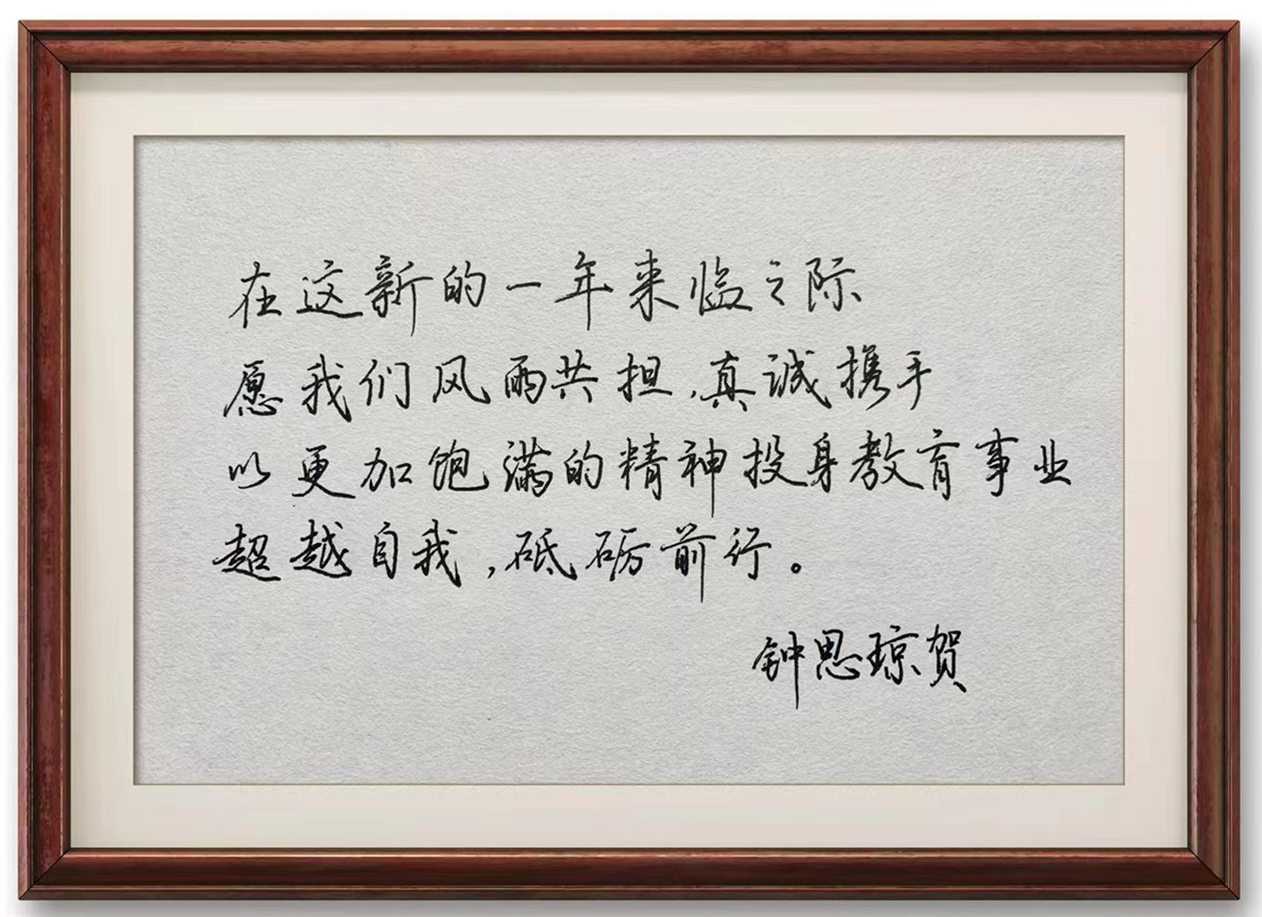 在这新的一年来临之际
愿我们风雨共担,真诚携手
以更加饱满的精神投身教育事业
超越自我,砥砺前行。
钟思琼贺